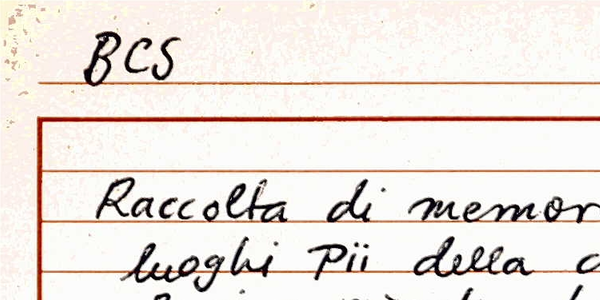 BCS
Raccolta di memor
luoghi Pii della c